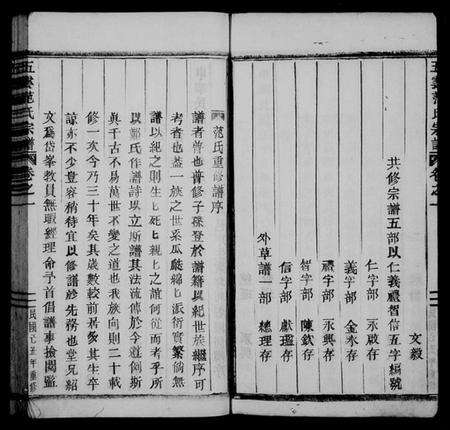 五雲范氏宗譜
卷之一
共修宗譜五部以仁義禮智信五字編號
仁字部 永啟存
義字部 金奉存
禮字部 永興存
智字部 陳欽存
信字部 獻瑠存
外草譜一部 總理存
文毅
范氏重修譜序
譜者普也普修子孫登於譜籍以紀世族繼序可
考者也蓋一族之世系瓜瓞綿已派衍實繁倘無
譜以紀之則生已死已親上之誼何從而考乎所
以鄭氏作譜詩以立斯譜其法流傳於今道何斯
與千古不易萬世不變之道也我族向則二十載
修一次今乃三十年矣其歲數較前居多其生卒
諒亦不少豈容稍待宜以修譜為先務也堂兄紹
文為岱峯教員無暇經理命予首倡譜事撿閱監
五雲范氏宗譜
卷之一
民國己丑年重修